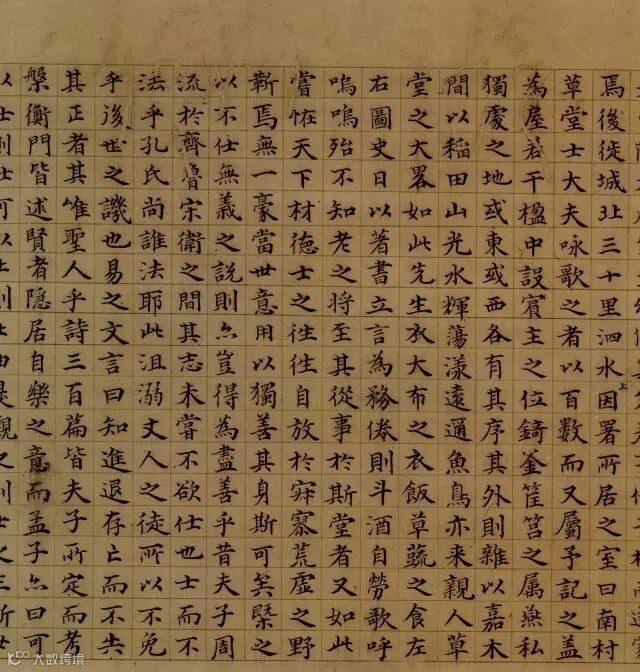 焉後徙城北三十里泗水上因署所居之室曰南村
草堂士大夫咏歌之者以百數而又屬予記之蓋
為屋若干楹中設賓主之位錡釜筐筥之屬燕私
獨處之地或東或西各有其序其外則雜以嘉木
間以稻田山光水輝蕩漾遠邇魚鳥亦来親人草
堂之大畧如此先生衣大布之衣飯草蔬之食左
右圖史日以著書立言為務倦則斗酒自勞歌呼
嗚嗚殆不知老之將至其從事於斯堂者又如此
嘗怪天下材徳士之徃徃自放於寂寞荒虛之野
靳焉無一豪當世意用以獨善其身斯可矣槩之
以不仕無義之說則亦豈得為盡善乎昔夫子周
流於齊魯宋衛之間其志未嘗不欲仕也士而不
法乎孔氏尚誰法耶此沮溺丈人之徒所以不免
乎後世之譏也易之文言曰知進退存亡而不失
其正者其唯聖人乎詩三百篇皆夫子所定而考
槃衡門皆述賢者隱居自樂之意而孟子亦曰可
以仕則仕可以止則止由是觀之則士之
大数跨境